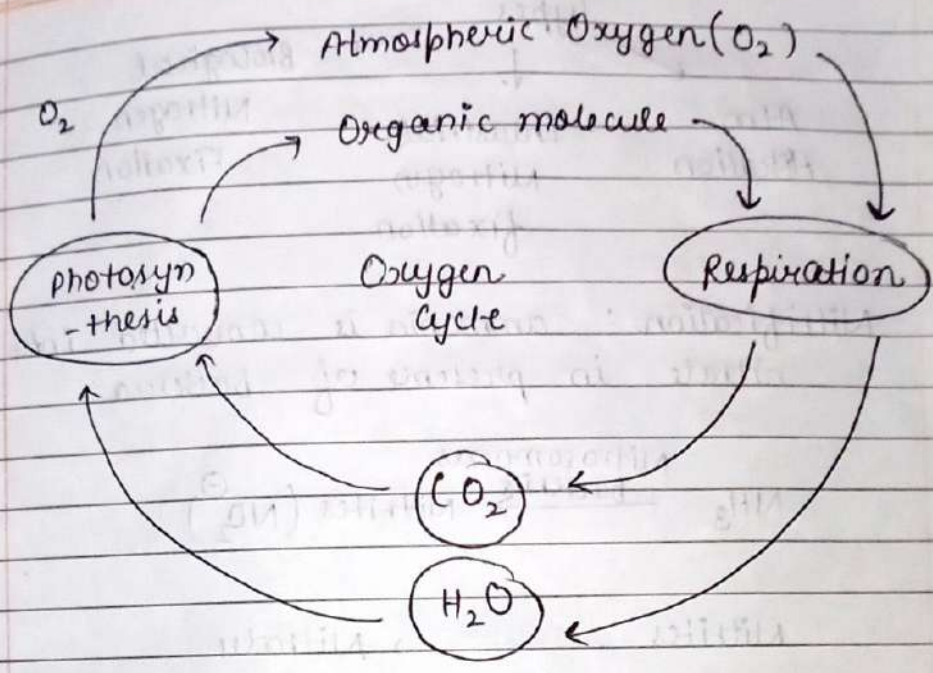 Atmospheric Oxygen (O₂)
O₂
Organic molecule
Photosyn
-thesis
Oxygen
Cycle
Respiration
CO₂
H₂O